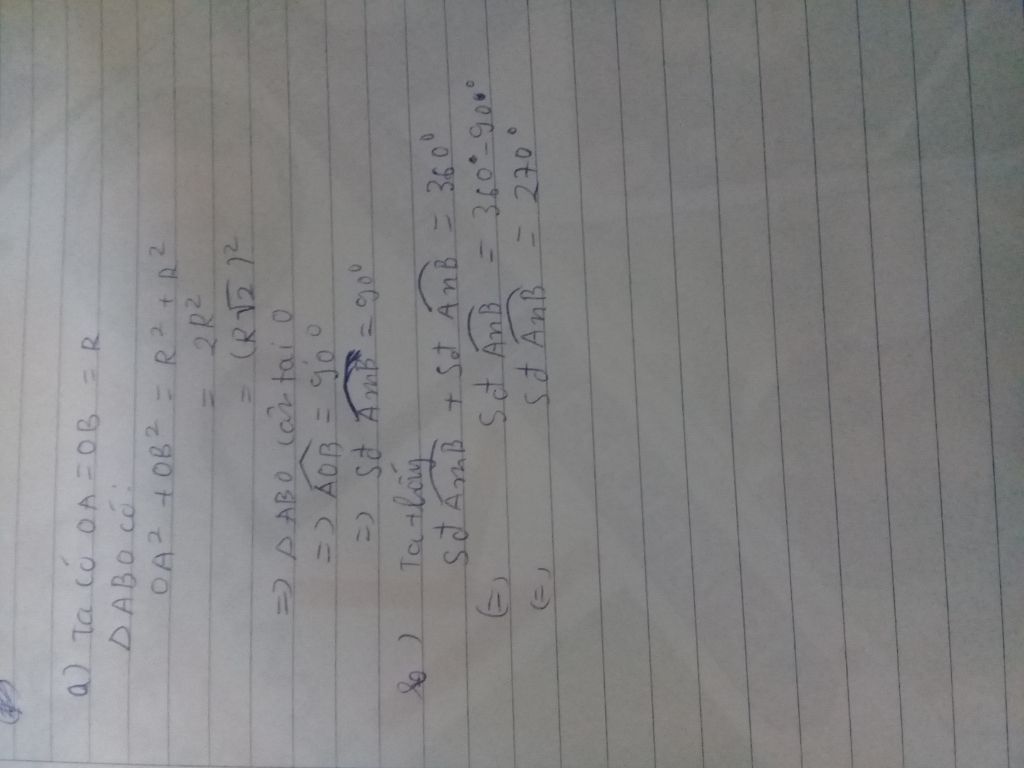 a) Ta có OA = OB = R
Δ ABO có:
OA² + OB² = R² + R²
= 2R²
= (R√2)²
=) Δ ABO cân tại O
=) AOB = 90°
=) Sđ AmB = 90°
b) Ta thấy
Sđ AmB + Sđ AnB = 360°
(=) Sđ AnB = 360° - 90°
(=) Sđ AnB = 270°